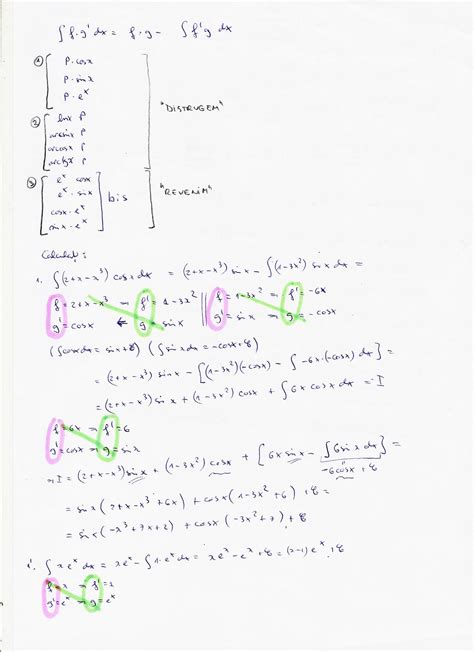 ∫ f·g' dx = f·g - ∫ f'g dx
1) P·cosx
P·sinx
P·e^x
2) lnx P
arcsinx P
arccosx P
arctgx P
"DISTRUGEM"
3) e^x cosx
e^x·sinx
cosx·e^x
sinx·e^x
bis
"REVENIM"
Calculați:
1. ∫(2+x-x³) cosx dx = (2+x-x³) sinx - ∫(1-3x²) sinx dx =
f = 2+x-x³ ⇒ f' = 1-3x² || f = 1-3x² ⇒ f' = -6x
g' = cosx ⇐ g = sinx || g' = sinx ⇒ g = -cosx
(∫cosx dx = sinx+C) (∫sinx dx = -cosx+C)
= (2+x-x³) sinx - [(1-3x²)(-cosx) - ∫ -6x·(-cosx) dx] =
= (2+x-x³) sinx + (1-3x²) cosx + ∫ 6x cosx dx = I
f = 6x ⇒ f' = 6
g' = cosx ⇒ g = sinx
⇒ I = (2+x-x³) sinx + (1-3x²) cosx + [6x sinx - ∫6sinx dx] =
-6cosx + C
= sinx (2+x-x³+6x) + cosx (1-3x²+6) + C =
= sinx (-x³+7x+2) + cosx (-3x²+7) + C
∫ x e^x dx = x e^x - ∫1·e^x dx = x e^x - e^x + C = (x-1) e^x + C
f = x ⇒ f' = 1
g' = e^x ⇒ g = e^x